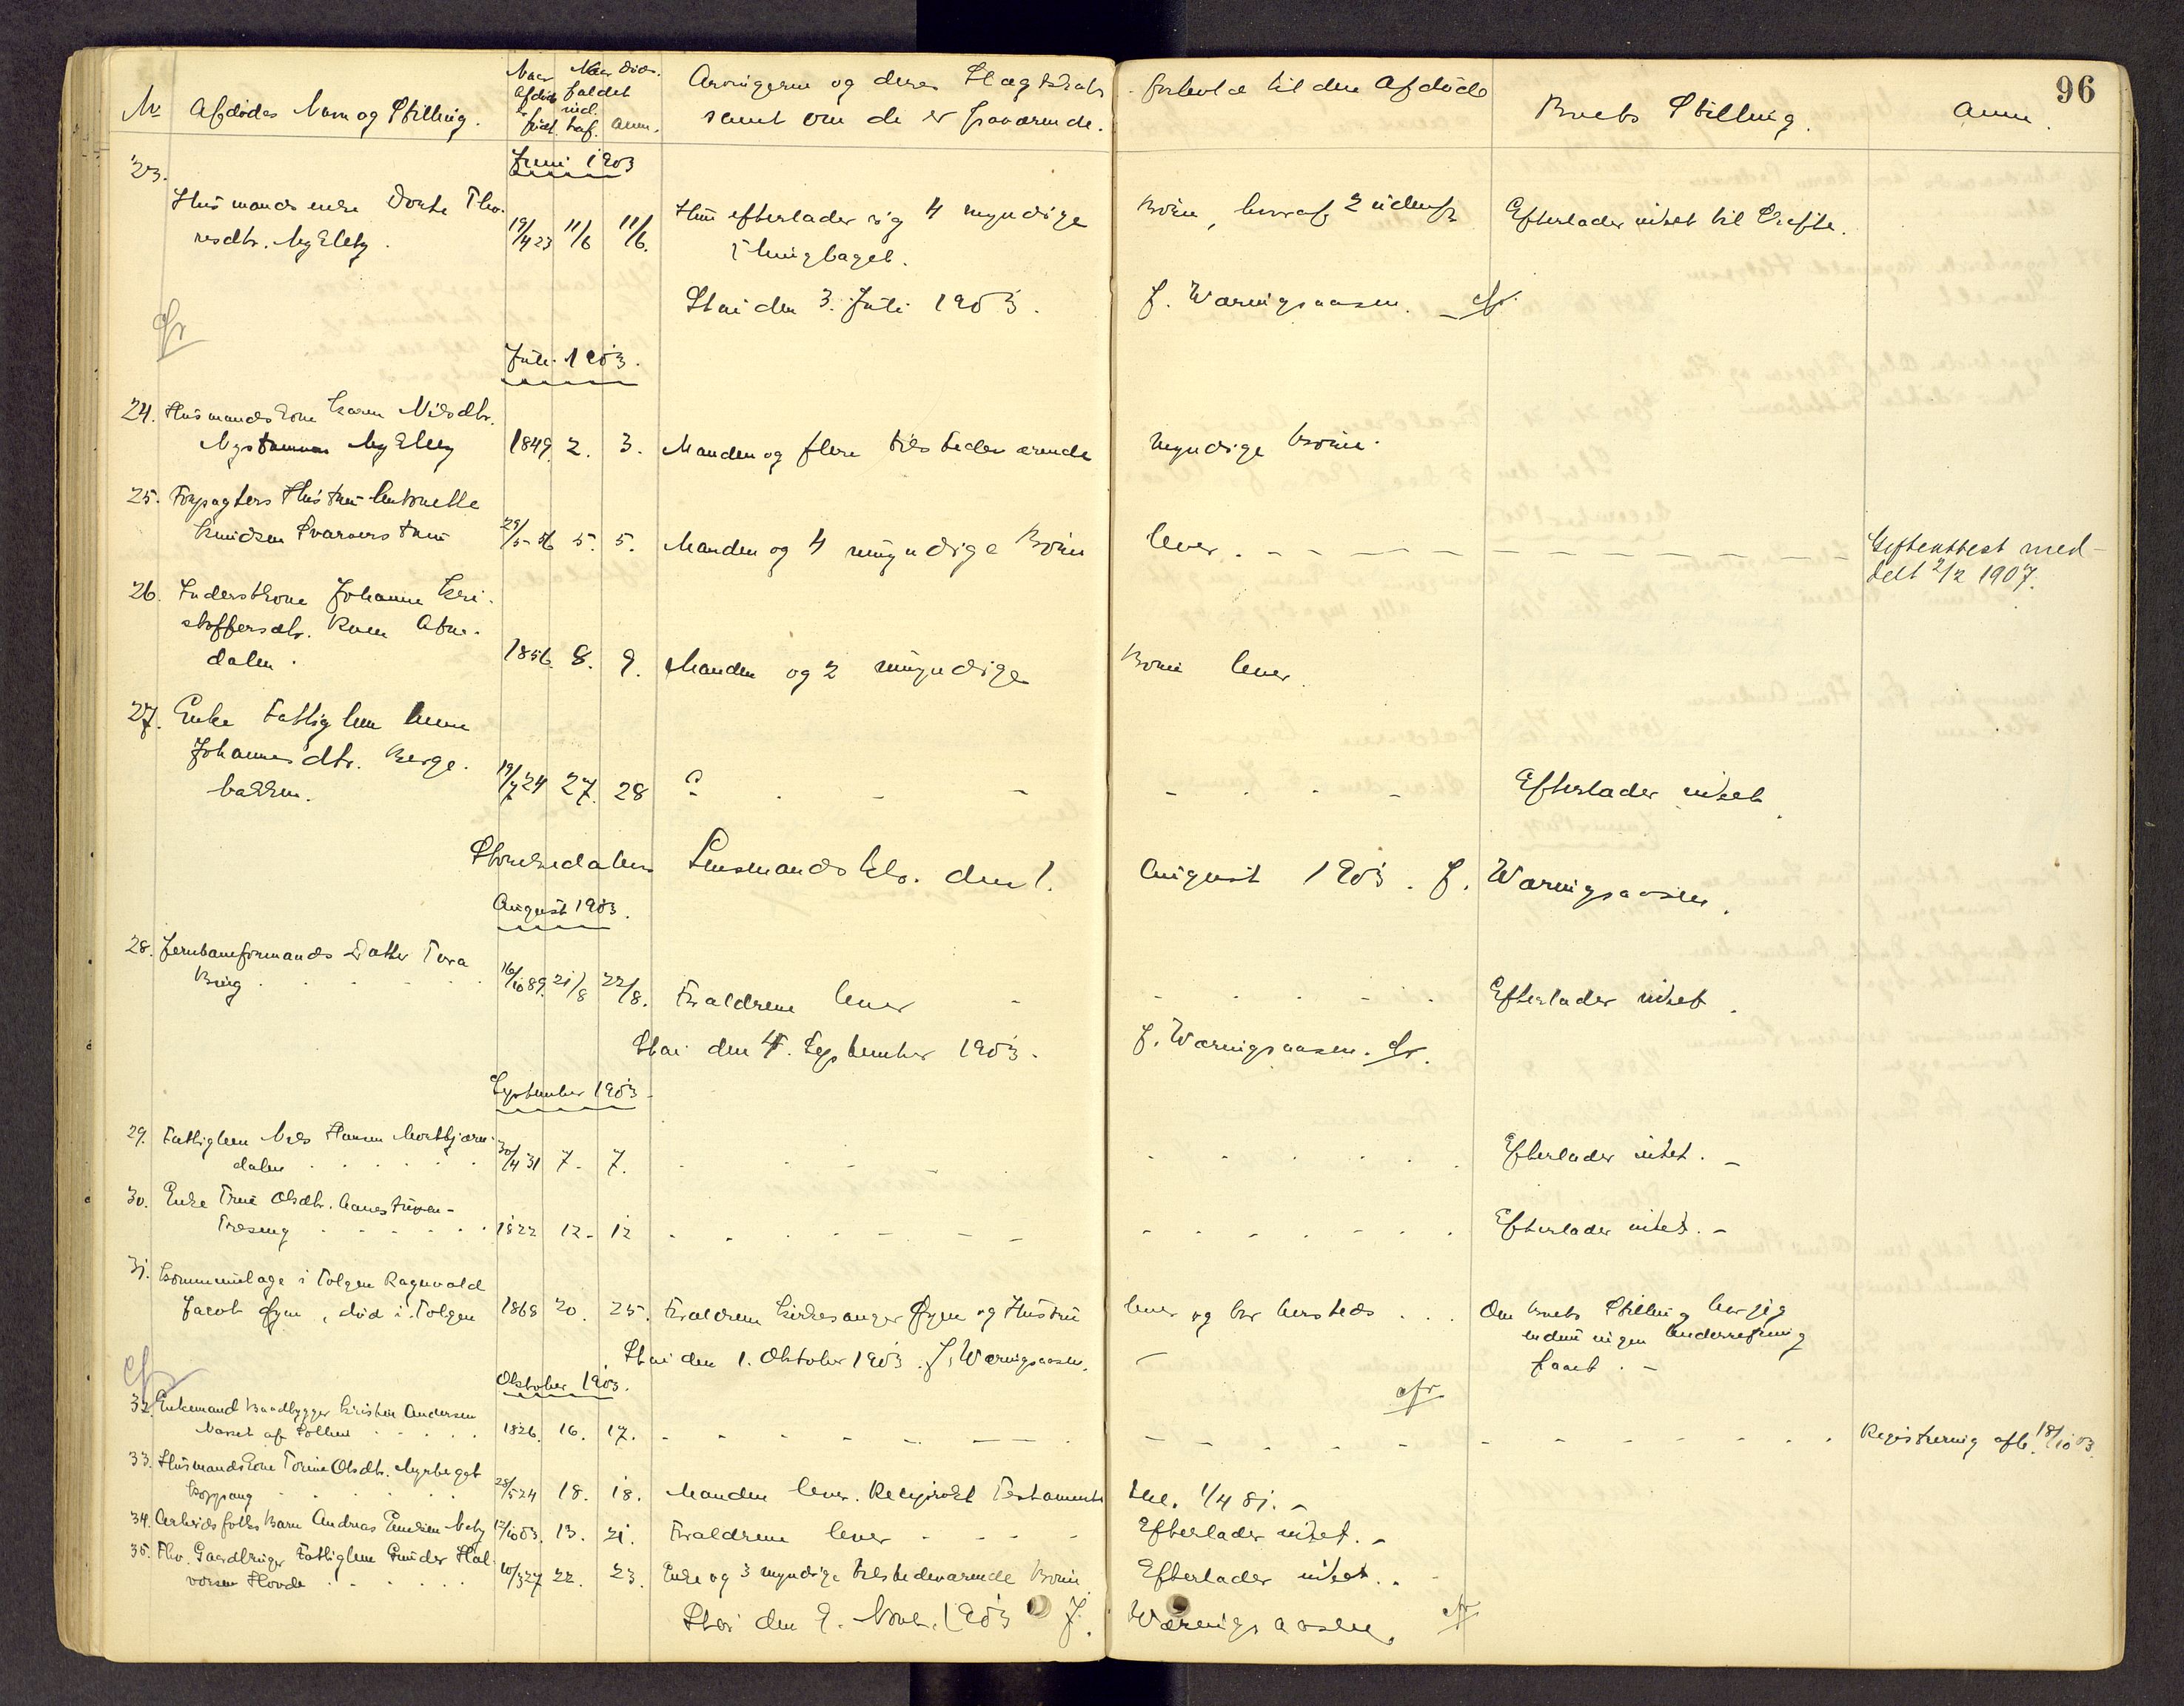 96
No Afdødes Navn og Stilling. Naar Afdøde er født. Naar Dødsfaldet indtraf. Anm. Arvingerne og deres Slægtskabs forhold til den Afdøde Boets Stilling. Anm.
samt om de er fraværende.
Juni 1903
23.
Husmandsenke Dorte Tho- Hun efterlader sig 4 myndige Børn, hvoraf 2 udenfr Efterlader intet til Skifte.
resdtr. 19/4 23 11/6 11/6. Thinglaget.
Stai den 3. Juli 1903. J. Wærnigsaasen. cfr.
cfr
Juli 1903.
24. Husmandskone Karen Nilsdtr.
1849. 2. 3. Manden og flere tilstedeværende myndige Børn.
25. Forpagters Hustru Antonette
Knudsen 29/5-56 5. 5. Manden og 4 umyndige Børn lever. Skifteattest med-
delt 2/2 1907.
26. Inderstkone Johanne Kri-
stoffersdtr. Atne-
dalen. 1856. 8. 9. Manden og 2 umyndige Børn lever.
27. Enke Fattiglem
Johannesdtr. Berge-
bakken. 19/7 24 27. 28 ? Efterlader intet.
Storelvedalens Lensmandsktr. den 1. August 1903. J. Wærnigsaasen.
August 1903.
28. Jernbaneformands Datter Tora
Bing 16/10 89. 21/8 22/8. Forældrene lever Efterlader intet.
Stai den 4. September 1903. J. Wærnigsaasen. cfr.
September 1903.
29. Fattiglem Nils Hansen
dalen 30/4 31 7. 7. Efterlader intet.
30. Enke Olsdtr.
Trøseng 1822 12. 12 Efterlader intet.
31. Kommunelæge i Tolgen Ragnvald
Jacob Øyen, død i Tolgen 1868 20. 25. Forældrene Kirkesanger Øyen og Hustru lever og bor hersteds Om Boets Stilling har jeg
endnu ingen Underretning
faaet.
Stai den 1. Oktober 1903. J. Wærnigsaasen.
cfr
Oktober 1903. cfr
32. Enkemand Baadbygger Kristen Andersen
af Sollien 1826. 16. 17. Registrering afh. 18/10 03.
33. Husmandskone Torine Olsdtr. Myrbeget
Koppang 28/5 24 18. 18. Manden lever. Reciprokt Testament 1/4 81.
34. Arbeidsfolks Barn Andreas 17/10 03. 13. 21. Forældrene lever Efterlader intet.
35. Fhv. Gaardbruger Fattiglem Gunder Hal-
vorsen Hovde 10/3 27 22. 23. Enke og 3 myndige tilstedeværende Børn. Efterlader intet.
Stai den 9. Novb. 1903 J. Wærnigsaasen. cfr